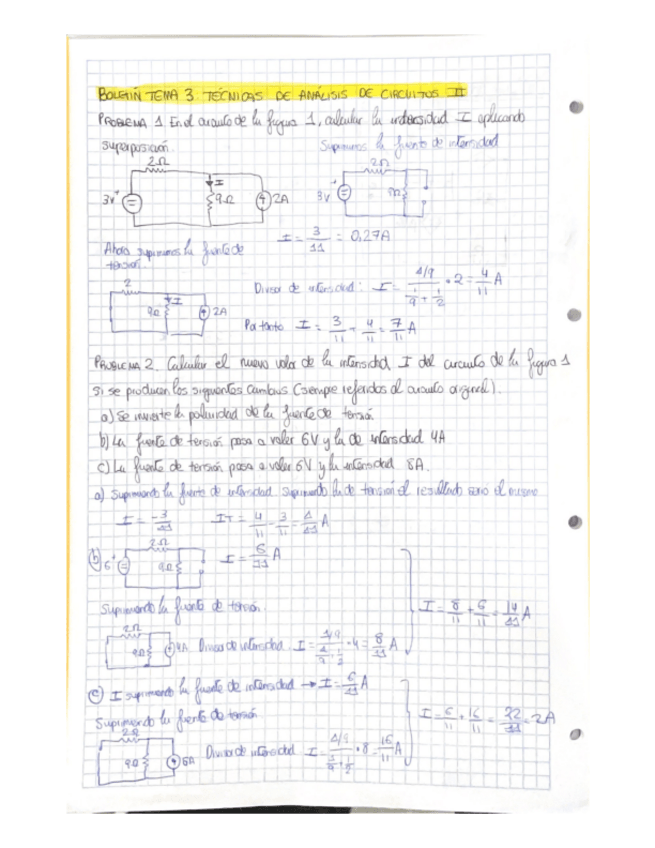 BOLETÍN TEMA 3. TÉCNICAS DE ANÁLISIS DE CIRCUITOS II
PROBLEMA 1 En el circuito de la figura 1, calcular la intensidad I aplicando
superposición.
Suprimimos la fuente de intensidad
2Ω
2Ω
3V
+
I
9Ω
2A
3V
+
9Ω
I = 3/11 = 0,27A
Ahora suprimimos la fuente de
tensión.
2
9Ω
I
2A
Divisor de intensidad: I = (1/9)/(1/9 + 1/2) · 2 = 4/11 A
Por tanto I = 3/11 + 4/11 = 7/11 A
PROBLEMA 2. Calcular el nuevo valor de la intensidad I del circuito de la figura 1
si se producen los siguientes cambios (siempre referidos al circuito original).
a) Se invierte la polaridad de la fuente de tensión
b) La fuente de tensión pasa a valer 6V y la de intensidad 4A
c) La fuente de tensión pasa a valer 6V y la intensidad 8A.
a) Suprimiendo la fuente de intensidad Suprimiendo la de tensión el resultado sería el mismo
I = -3/11
IT = 4/11 - 3/11 = 1/11 A
2Ω
b) 6
+
9Ω
I = 6/11 A
Suprimiendo la fuente de tensión.
I = 8/11 + 6/11 = 14/11 A
2Ω
9Ω
4A
Divisor de intensidad: I = (1/9)/(1/9 + 1/2) · 4 = 8/11 A
c) I suprimiendo la fuente de intensidad → I = 6/11 A
Suprimiendo la fuente de tensión
I = 6/11 + 16/11 = 22/11 = 2A
2Ω
9Ω
8A
Divisor de intensidad I = (1/9)/(1/9 + 1/2) · 8 = 16/11 A